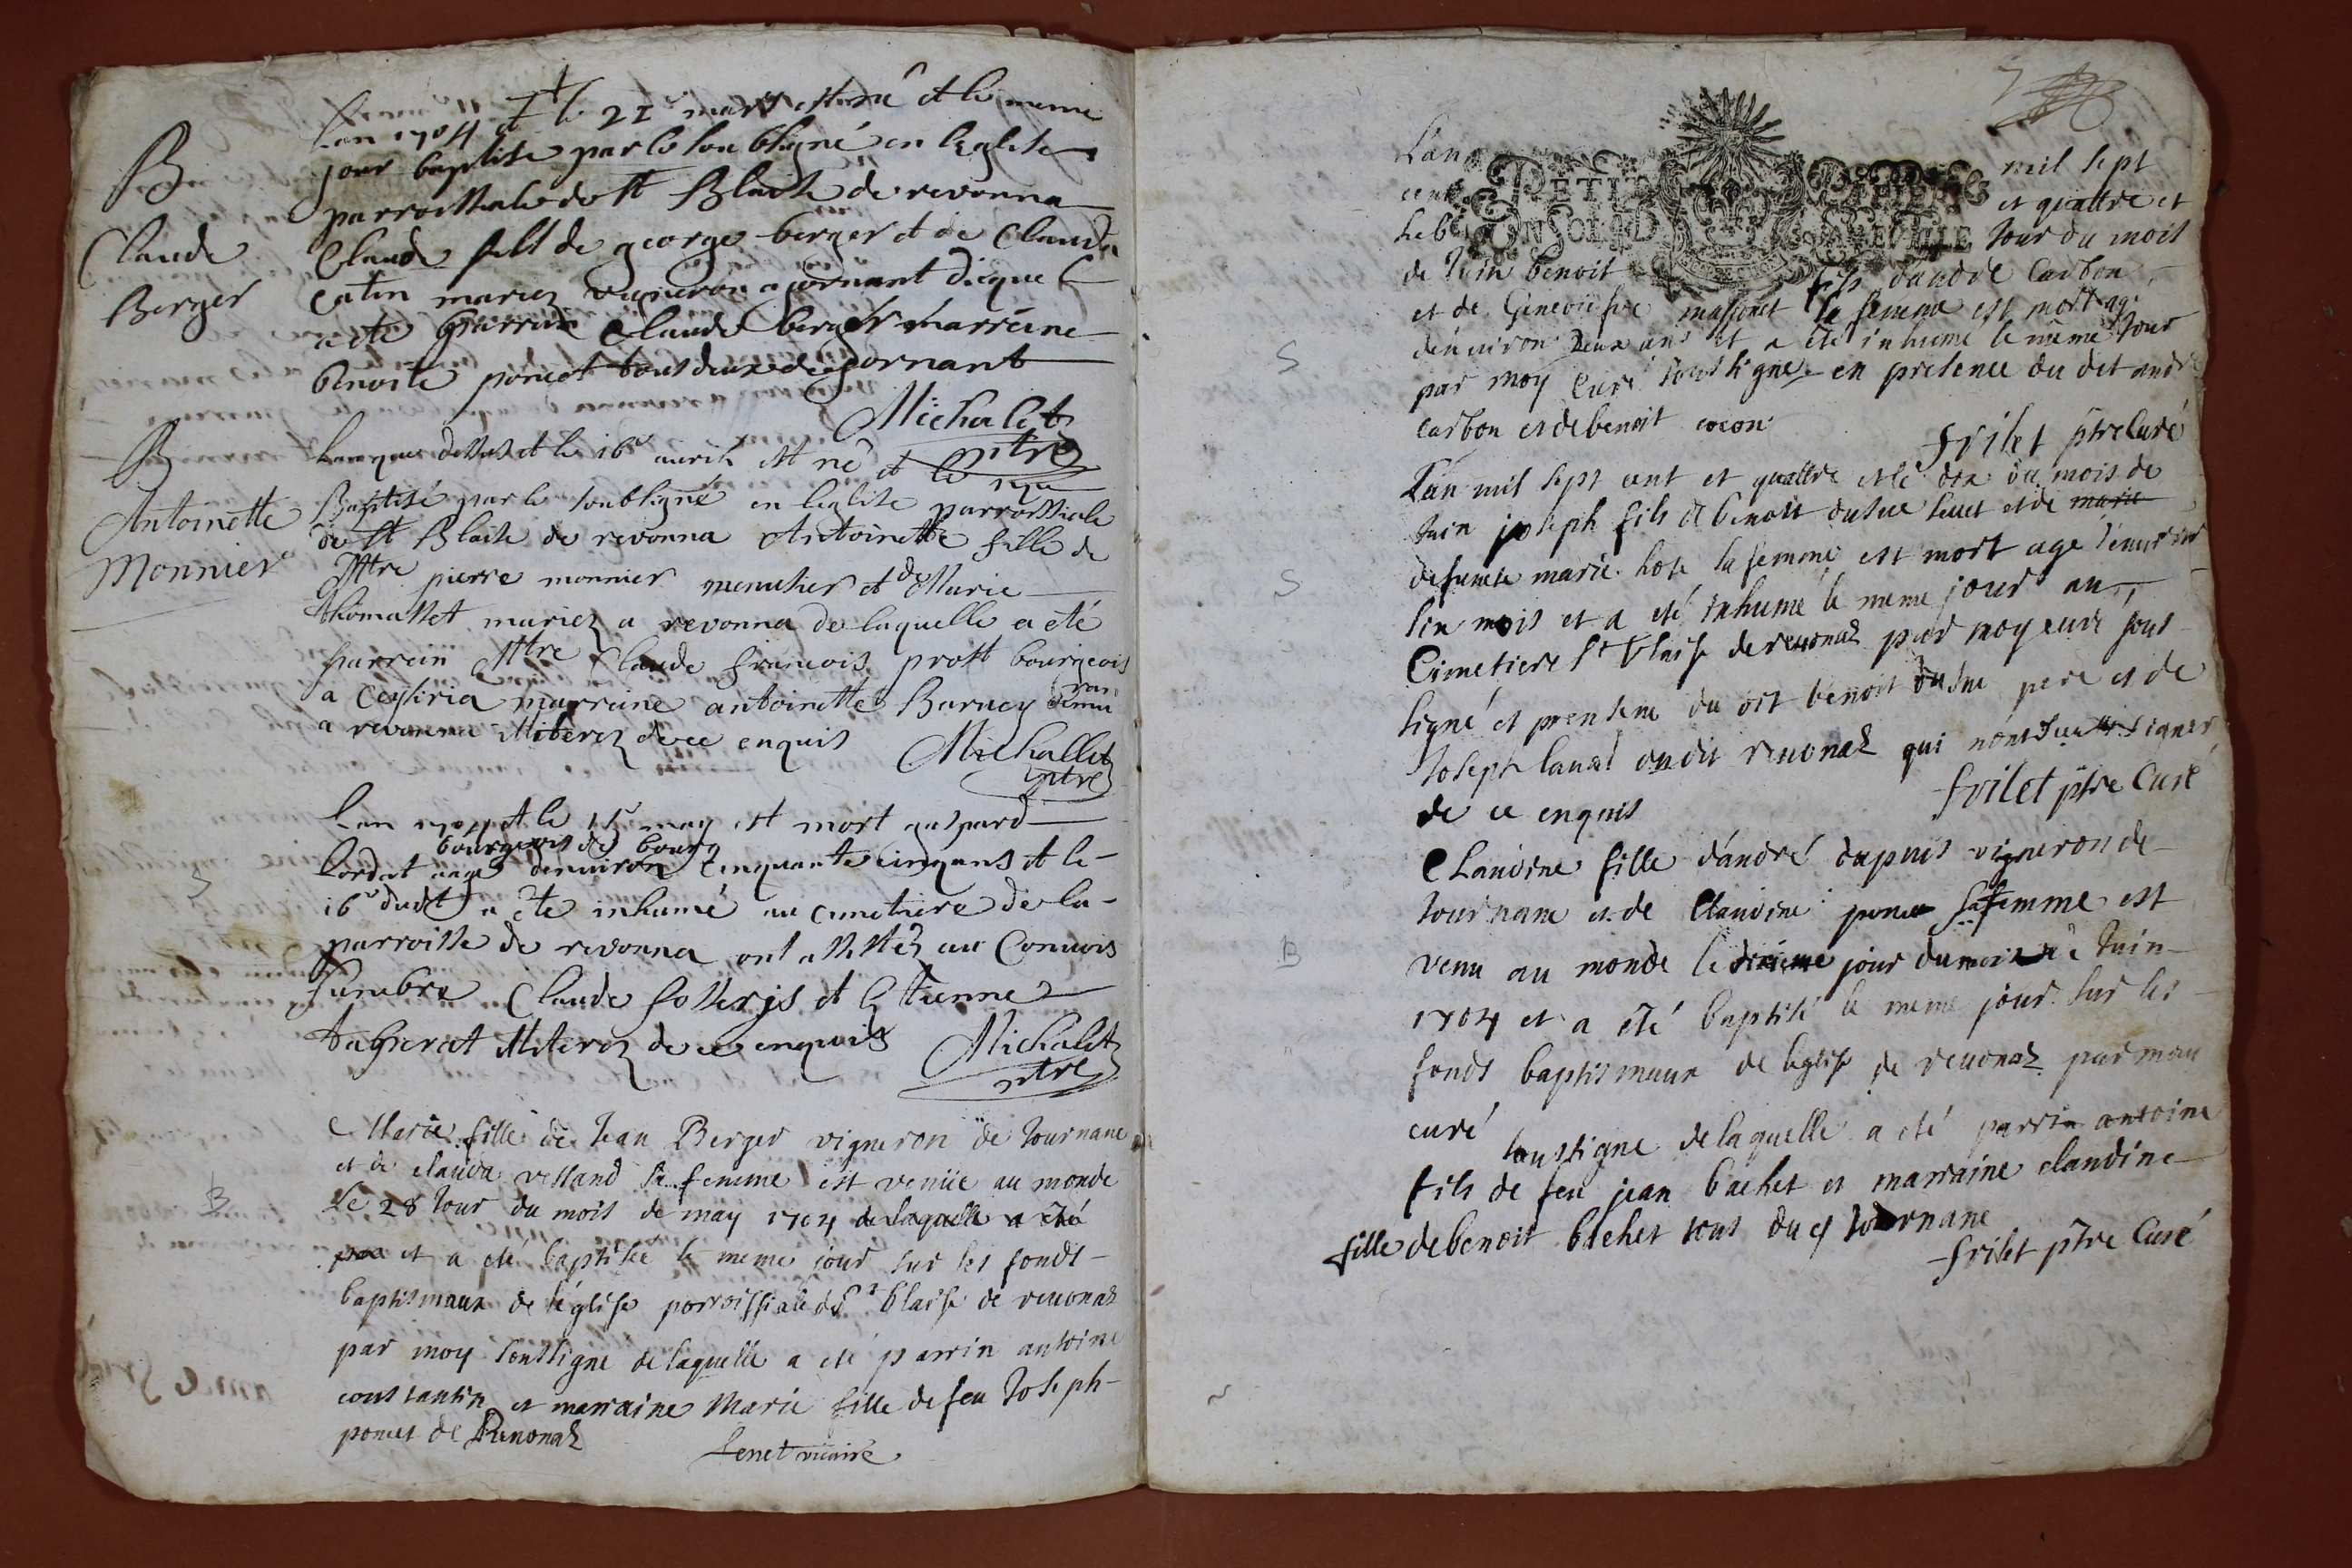 L'an 1704 et le 21e mars est né et le meme
jour baptisé par le soubsigné en l'eglise
parroissiale de st Blaise de revonna
Claude fils de george berger et de Clauda
catin mariez vigneron a jornant duquel
a eté parrain Claude berger marreine
benoite poncet tous deux de jornant
Michalet
ptre
B
Claude
Berger
L'an que dessus et le 16e avril est né et le
Baptisé par le soubsigné en l'eglise parroissiale
de st Blaise de revonna Antoinette fille de
Mtre pierre monnier menusier et de Marie
thomasset mariez a revonna de laquelle a eté
parrein Mtre Claude francois prost bourgeois
a Ceysiria marreine antoinette Burney
a revonna illiterez de ce enquis
Michallet
ptre
B
Antoinette
Monnier
L'an 1704 et le 15e may est mort gaspard
bourgeois de bourg
Cordat aagé denviron cinquante cinq ans et le
16e dudt a eté inhumé au cimetiere de la
parroisse de revonna ont assistéz au Convois
funebre Claude et Etienne
illiterez de ce enquis
Michalet
ptre
S
Marie fille de Jean Berger vigneron de Journane
et de clauda velland sa femme est venüe au monde
Le 28 Jour du mois de may 1704 de laquelle a eté
par et a eté baptisée le meme jour sur les fonds
baptismaux de l'église parroissiale de St blaise de revonaz
par moy soussigne de laquelle a eté parrin antoine
constantin et marraine Marie fille de feu Joseph
poncet de Revonaz
Fenet vicaire
B
7
PETIT PAPIER
UN SOL LE VILLE
L'an mil sept
cent et quattre et
le Jour du mois
de Juin benoit fils d'andré Carbon
et de Geneviefve massonet sa femme est mort agé
d'environ Deux ans et a eté inhumé le même Jour
par moy Curé soussigné en presence du dit andré
Carbon et de benoit cocon
frilet ptre Curé
S
L'an mil sept cent et quattre et le dix du mois de
Juin joseph fils de benoit dusue et de marie
defuncte marie hote sa femme est mort agé d'environ
six mois et a eté inhumé le meme jour au
Cimetiere St blaise de revonaz par moy curé sous
signé et presence du dit benoit dusue pere et de
Joseph du dit revonaz qui n'ont sceu signer
de ce enquis
frilet ptre Curé
S
Claudine fille d'andré dupuis vigneron de
Journane et de Claudine poncet sa femme est
venu au monde le jour du mois de Juin
1704 et a été baptisé le meme jour sur les
fonds baptismaux de l'eglise de revonaz par moy
curé soussigne de laquelle a eté parrin antoine
fils de feu jean bachet et marraine claudine
fille de benoit bachet tous du dt Journane
frilet ptre Curé
B